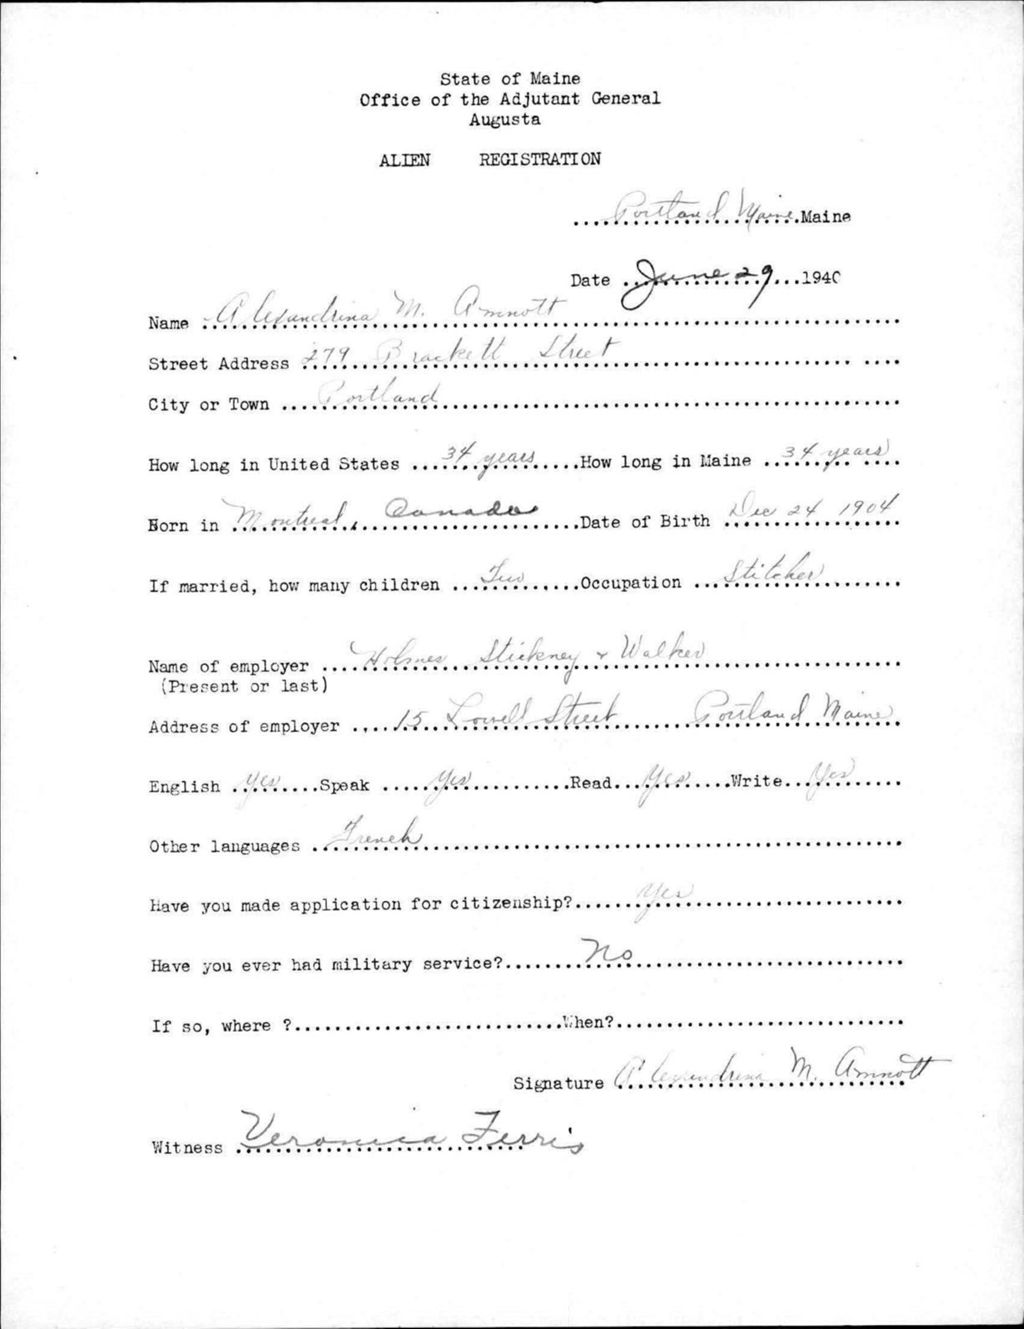 State of Maine
Office of the Adjutant General
Augusta
ALIEN REGISTRATION
Portland Maine Maine
Date June 29 1940
Name Alexandrina M. Amnott
Street Address 279 Brackett Street
City or Town Portland
How long in United States 34 years How long in Maine 34 years
Born in Montreal, Canada Date of Birth Dec 24 1904
If married, how many children Two Occupation Stitcher
Name of employer Holmes Stickney + Walker
(Present or last)
Address of employer 15 Lowell Street Portland Maine
English Yes Speak Yes Read Yes Write Yes
Other languages French
Have you made application for citizenship? Yes
Have you ever had military service? No
If so, where ? When?
Signature Alexandrina M. Amnott
Witness Veronica Ferris